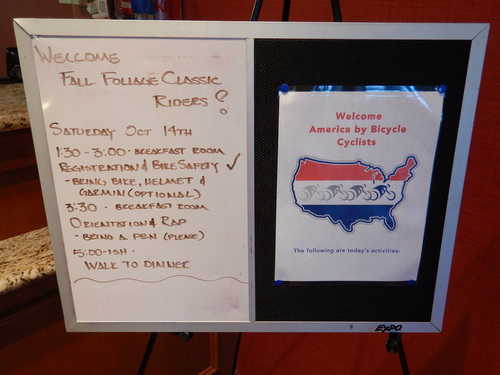 WELCOME
FALL FOLIAGE CLASSIC
RIDERS!
SATURDAY OCT 14TH
1:30 - 3:00 · BREAKFAST ROOM
REGISTRATION & BIKE SAFETY ✓
- BRING BIKE, HELMET &
GARMIN (OPTIONAL)
3:30 · BREAKFAST ROOM
ORIENTATION & RAP
· BRING A PEN (PLEASE)
5:00-ISH ·
WALK TO DINNER
Welcome
America by Bicycle
Cyclists
The following are today's activities:
EXPO